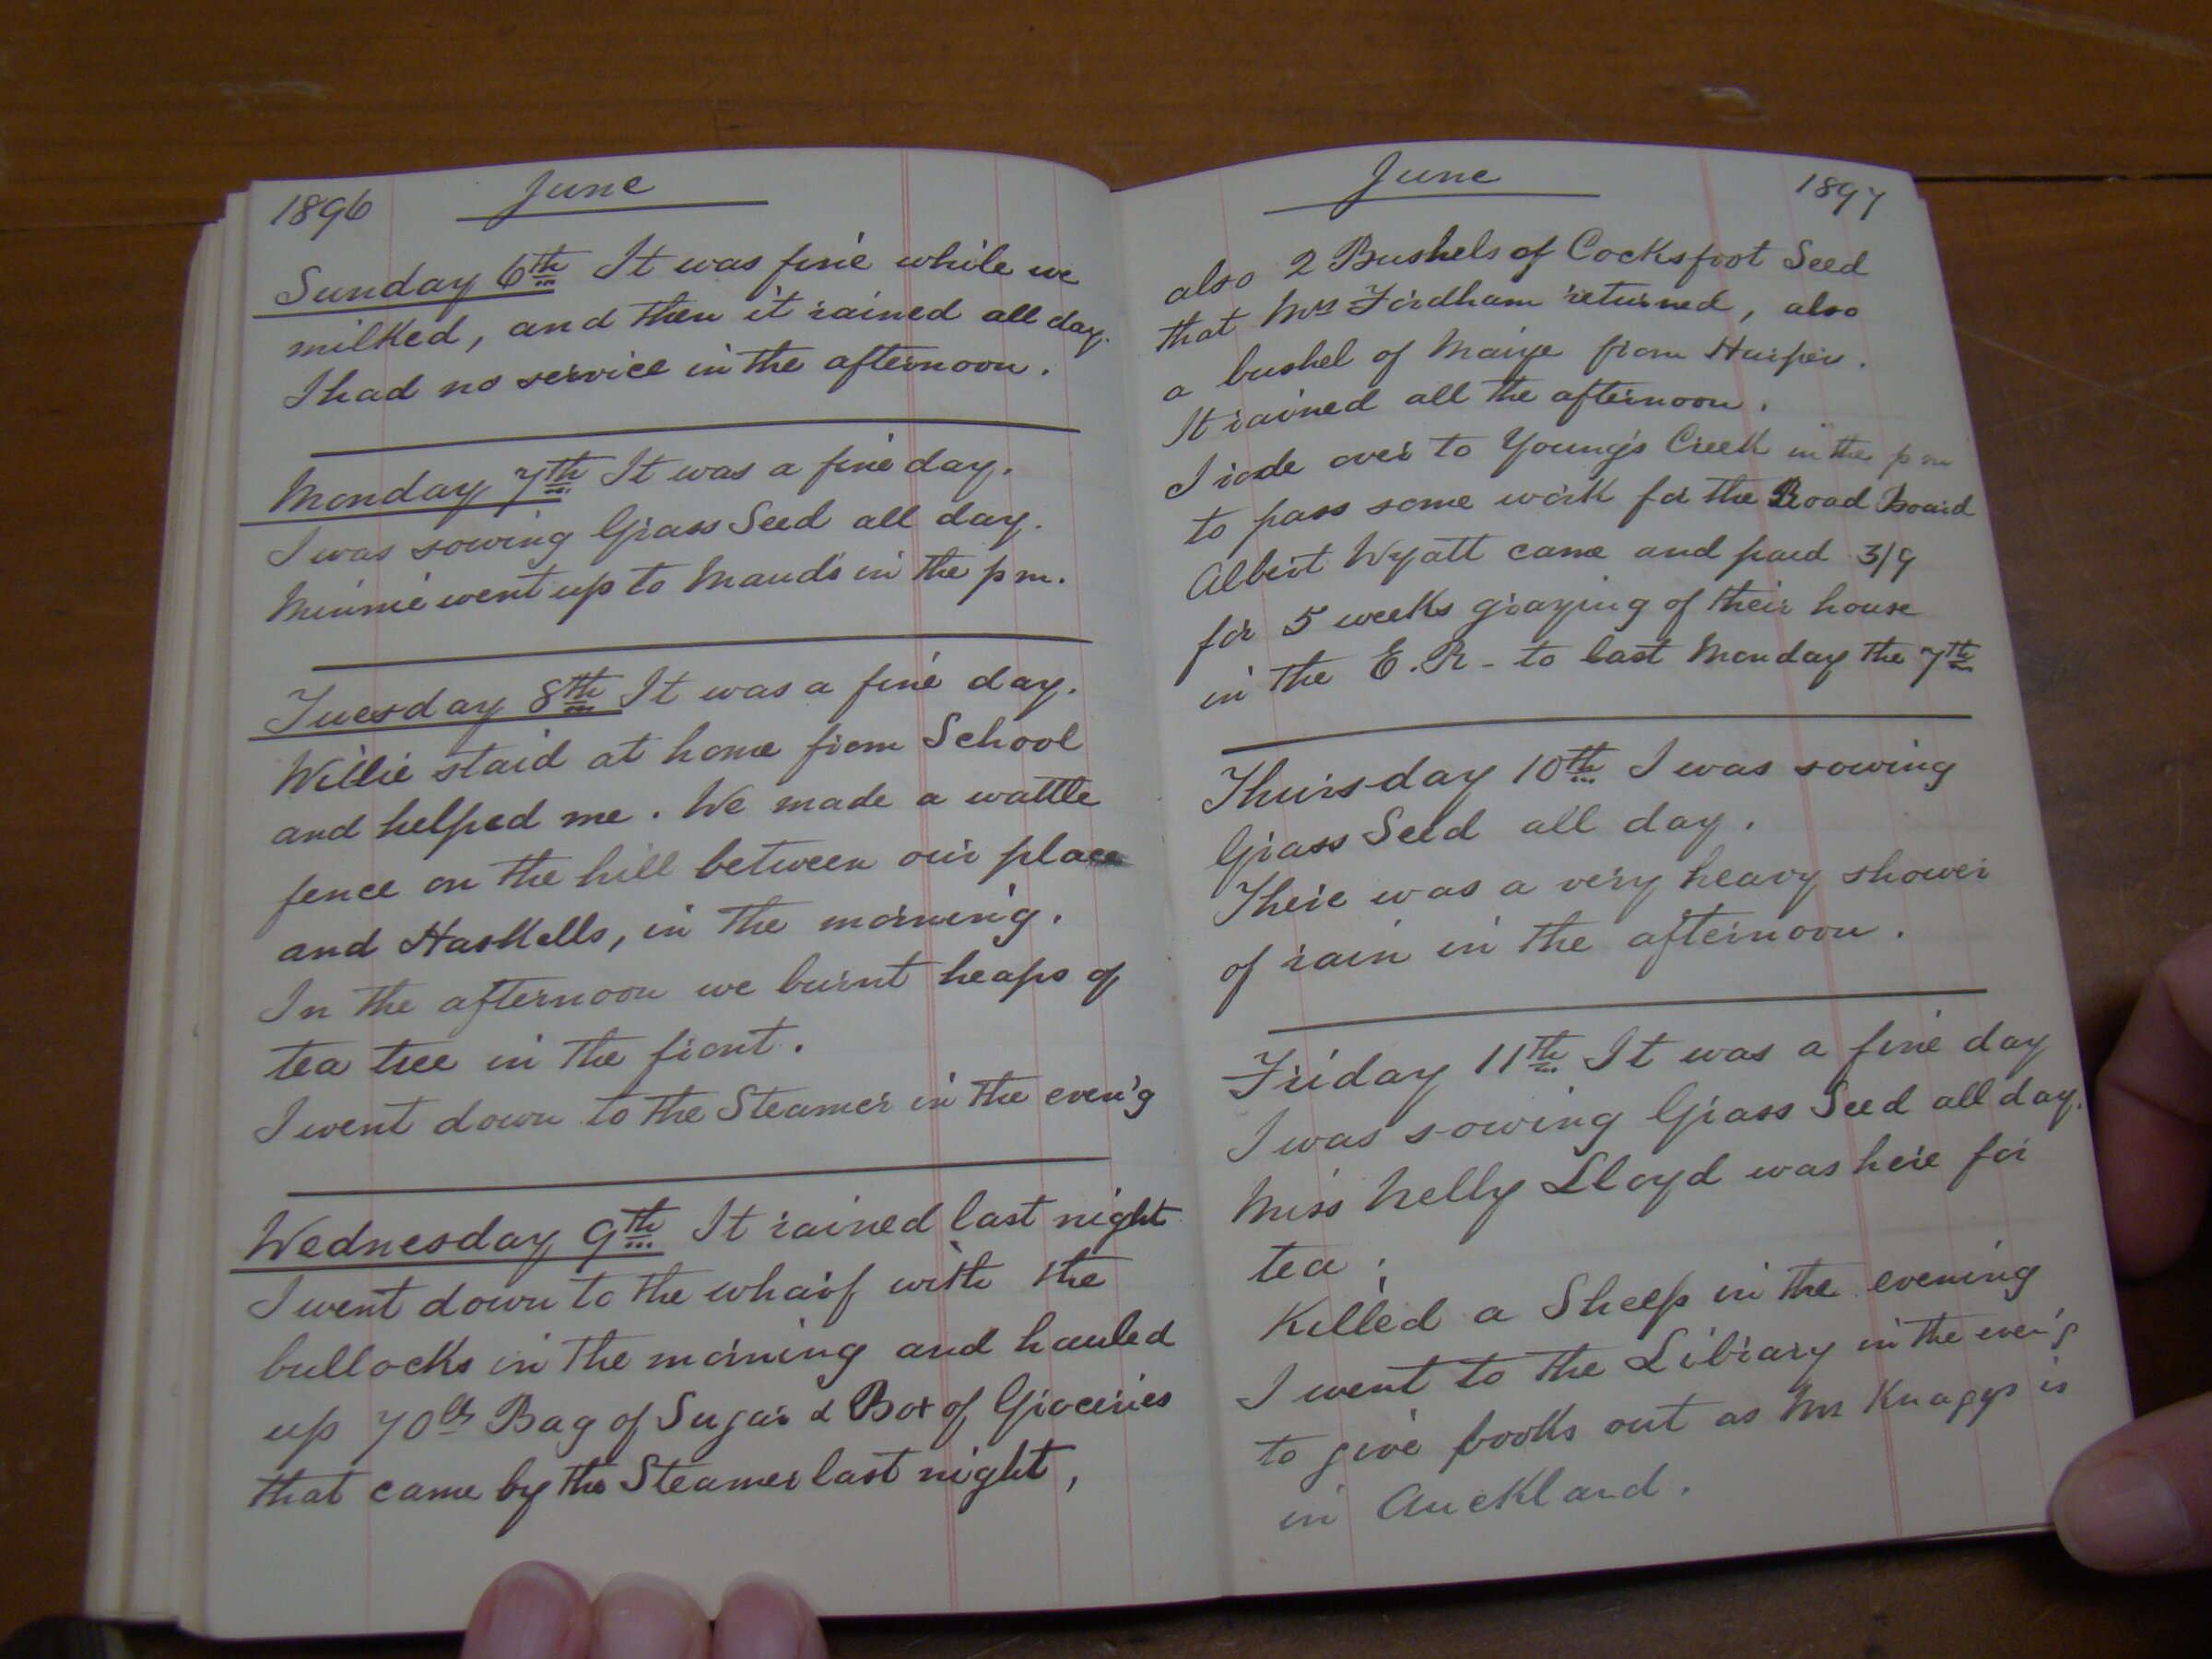 1896 June
Sunday 6th It was fine while we
milked, and then it rained all day.
I had no service in the afternoon.
Monday 7th It was a fine day.
I was sowing Grass Seed all day.
Minnie went up to Maud's in the pm.
Tuesday 8th It was a fine day.
Willie staid at home from School
and helped me. We made a wattle
fence on the hill between our place
and Haskells, in the morning.
In the afternoon we burnt heaps of
tea tree in the front.
I went down to the Steamer in the even'g
Wednesday 9th It rained last night
I went down to the wharf with the
bullocks in the morning and hauled
up 70lb Bag of Sugar & Box of Groceries
that came by the Steamer last night,
June 1897
also 2 Bushels of Cocksfoot Seed
that Mrs Fordham returned, also
a bushel of Maize from Harper.
It rained all the afternoon.
I rode over to Young's Creek in the pm
to pass some work for the Road Board
Albert Wyatt came and paid 3/9
for 5 weeks grazing of their house
in the E.R - to last Monday the 7th
Thursday 10th I was sowing
Grass Seed all day.
There was a very heavy shower
of rain in the afternoon.
Friday 11th It was a fine day
I was sowing Grass Seed all day.
Miss Nelly Lloyd was here for
tea.
Killed a Sheep in the evening
I went to the Library in the even'g
to give books out as Mr Knaggs is
in Auckland.